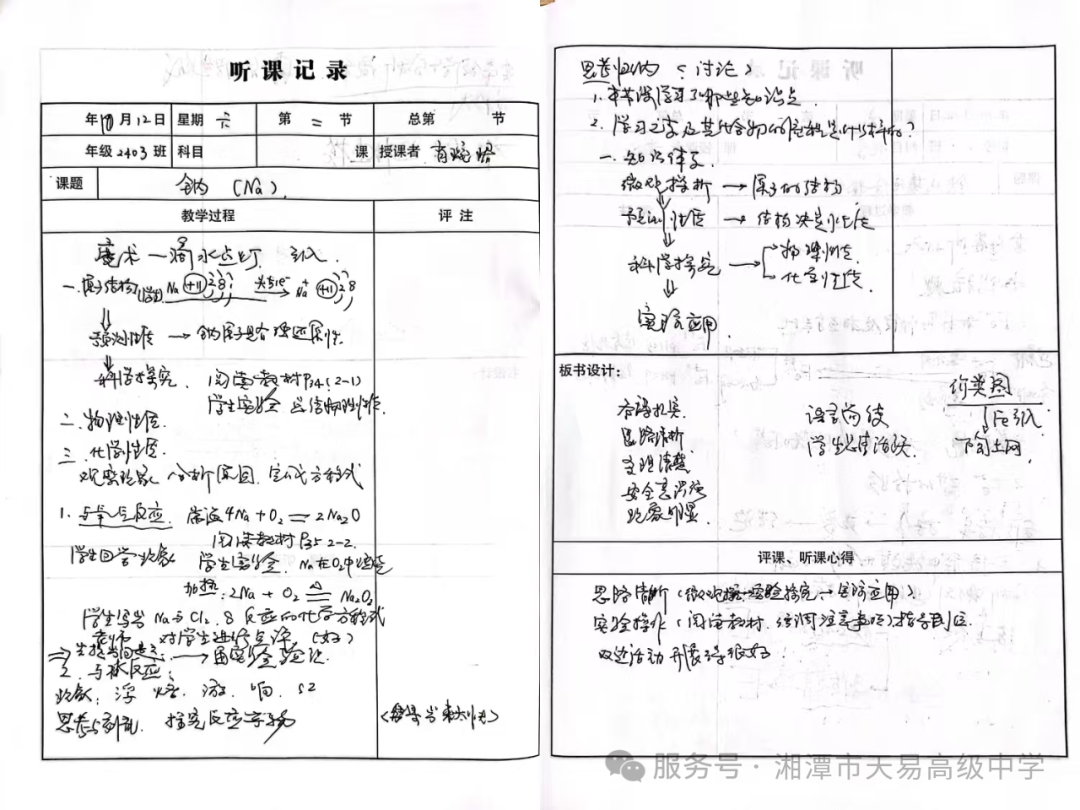 听课记录
年10月12日 星期 六 第 二 节 总第 节
年级2403班 科目 课 授课者
课题 钠 (Na).
教学过程 评 注
魔术—滴水点灯 引入.
一.原子结构 Na +11 2 8 1 失去1e⁻ Na⁺ +11 2 8
预测性质 → 钠原子具备强还原性
科学探究. 阅读教材P34(2-1)
学生实验 总结物理性质.
二.物理性质.
三.化学性质.
观察现象 分析原因 写化学方程式
1.与氧气反应. 常温4Na+O₂=2Na₂O
阅读教材P35 2-2.
学生回答现象 学生实验.
加热:2Na+O₂ △ Na₂O₂
学生写出Na与Cl₂.S反应的化学方程式
老师 对学生进行点评 (好)
2.与水反应:
现象:浮.熔.游.响.红
思考与讨论. 探究反应实质
思考归纳(讨论)
1.本节课学习了哪些知识点.
2.学习元素及其化合物的
一.知识体系
微观探析 → 原子的结构
预测性质 → 结构决定性质
科学探究 → 物理性质
化学性质.
实际应用.
板书设计:
思路清晰 语言简练 价类图
Fe引入
安全意识强
现象明显.
评课、听课心得
思路清晰(微观探析—实验探究→实际应用)
实验操作(阅读教材.强调注意事项)指导到位
双边活动开展得很好.
服务号·湘潭市天易高级中学